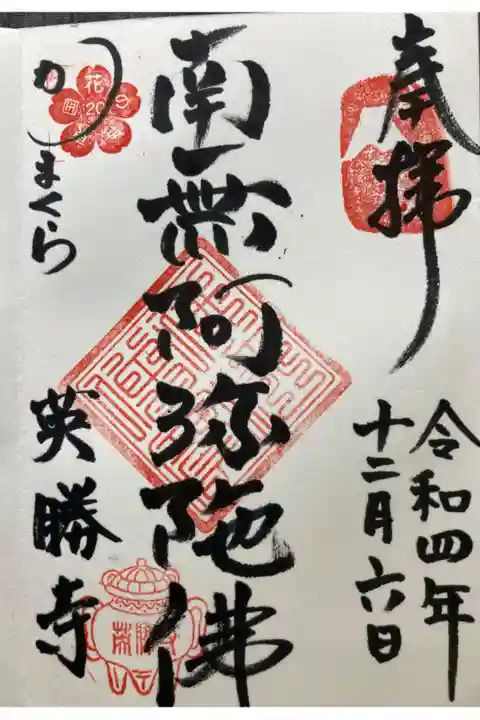 奉拝
令和四年
十二月六日
南無阿弥陀佛
かまくら
英勝寺
花
20